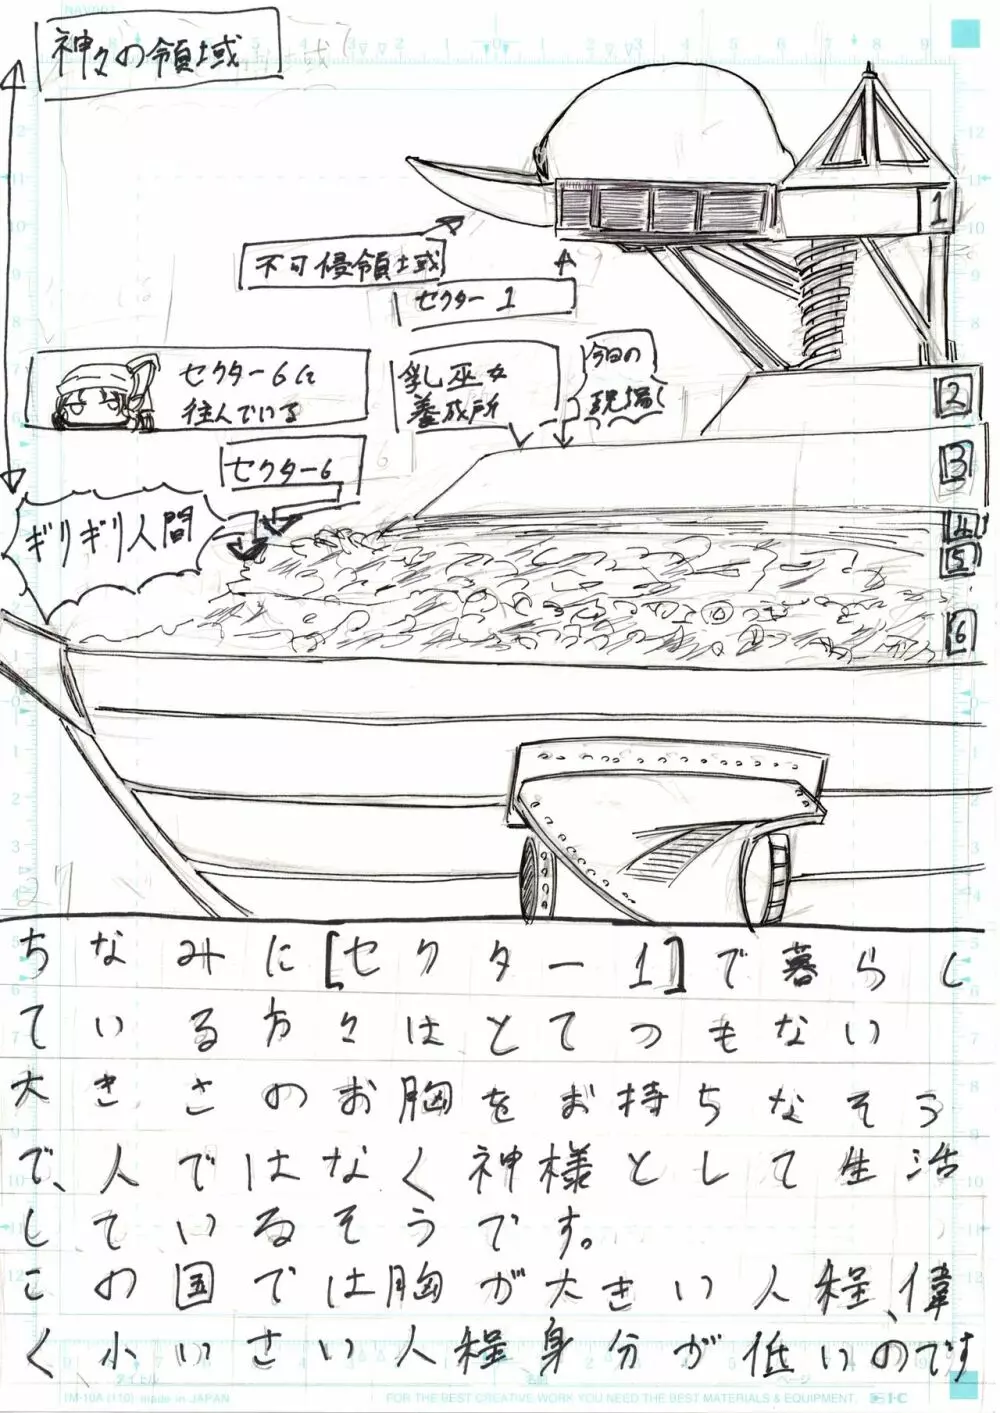 神々の領域
1
不可侵領域
セクター1
セクター6に
住んでいる
乳巫女
養成所
今日の
現場
2
セクター6
3
ギリギリ人間
4
5
6
ちなみに[セクター1]で暮らし
ている方々はとてつもない
大きさのお胸をお持ちなそう
で、人ではなく神様として生活
しているそうです。
この国では胸が大きい人程、偉
く小いさい人程身分が低いのです
IM-10A (110) made in JAPAN
FOR THE BEST CREATIVE WORK YOU NEED THE BEST MATERIALS & EQUIPMENT.
I-C